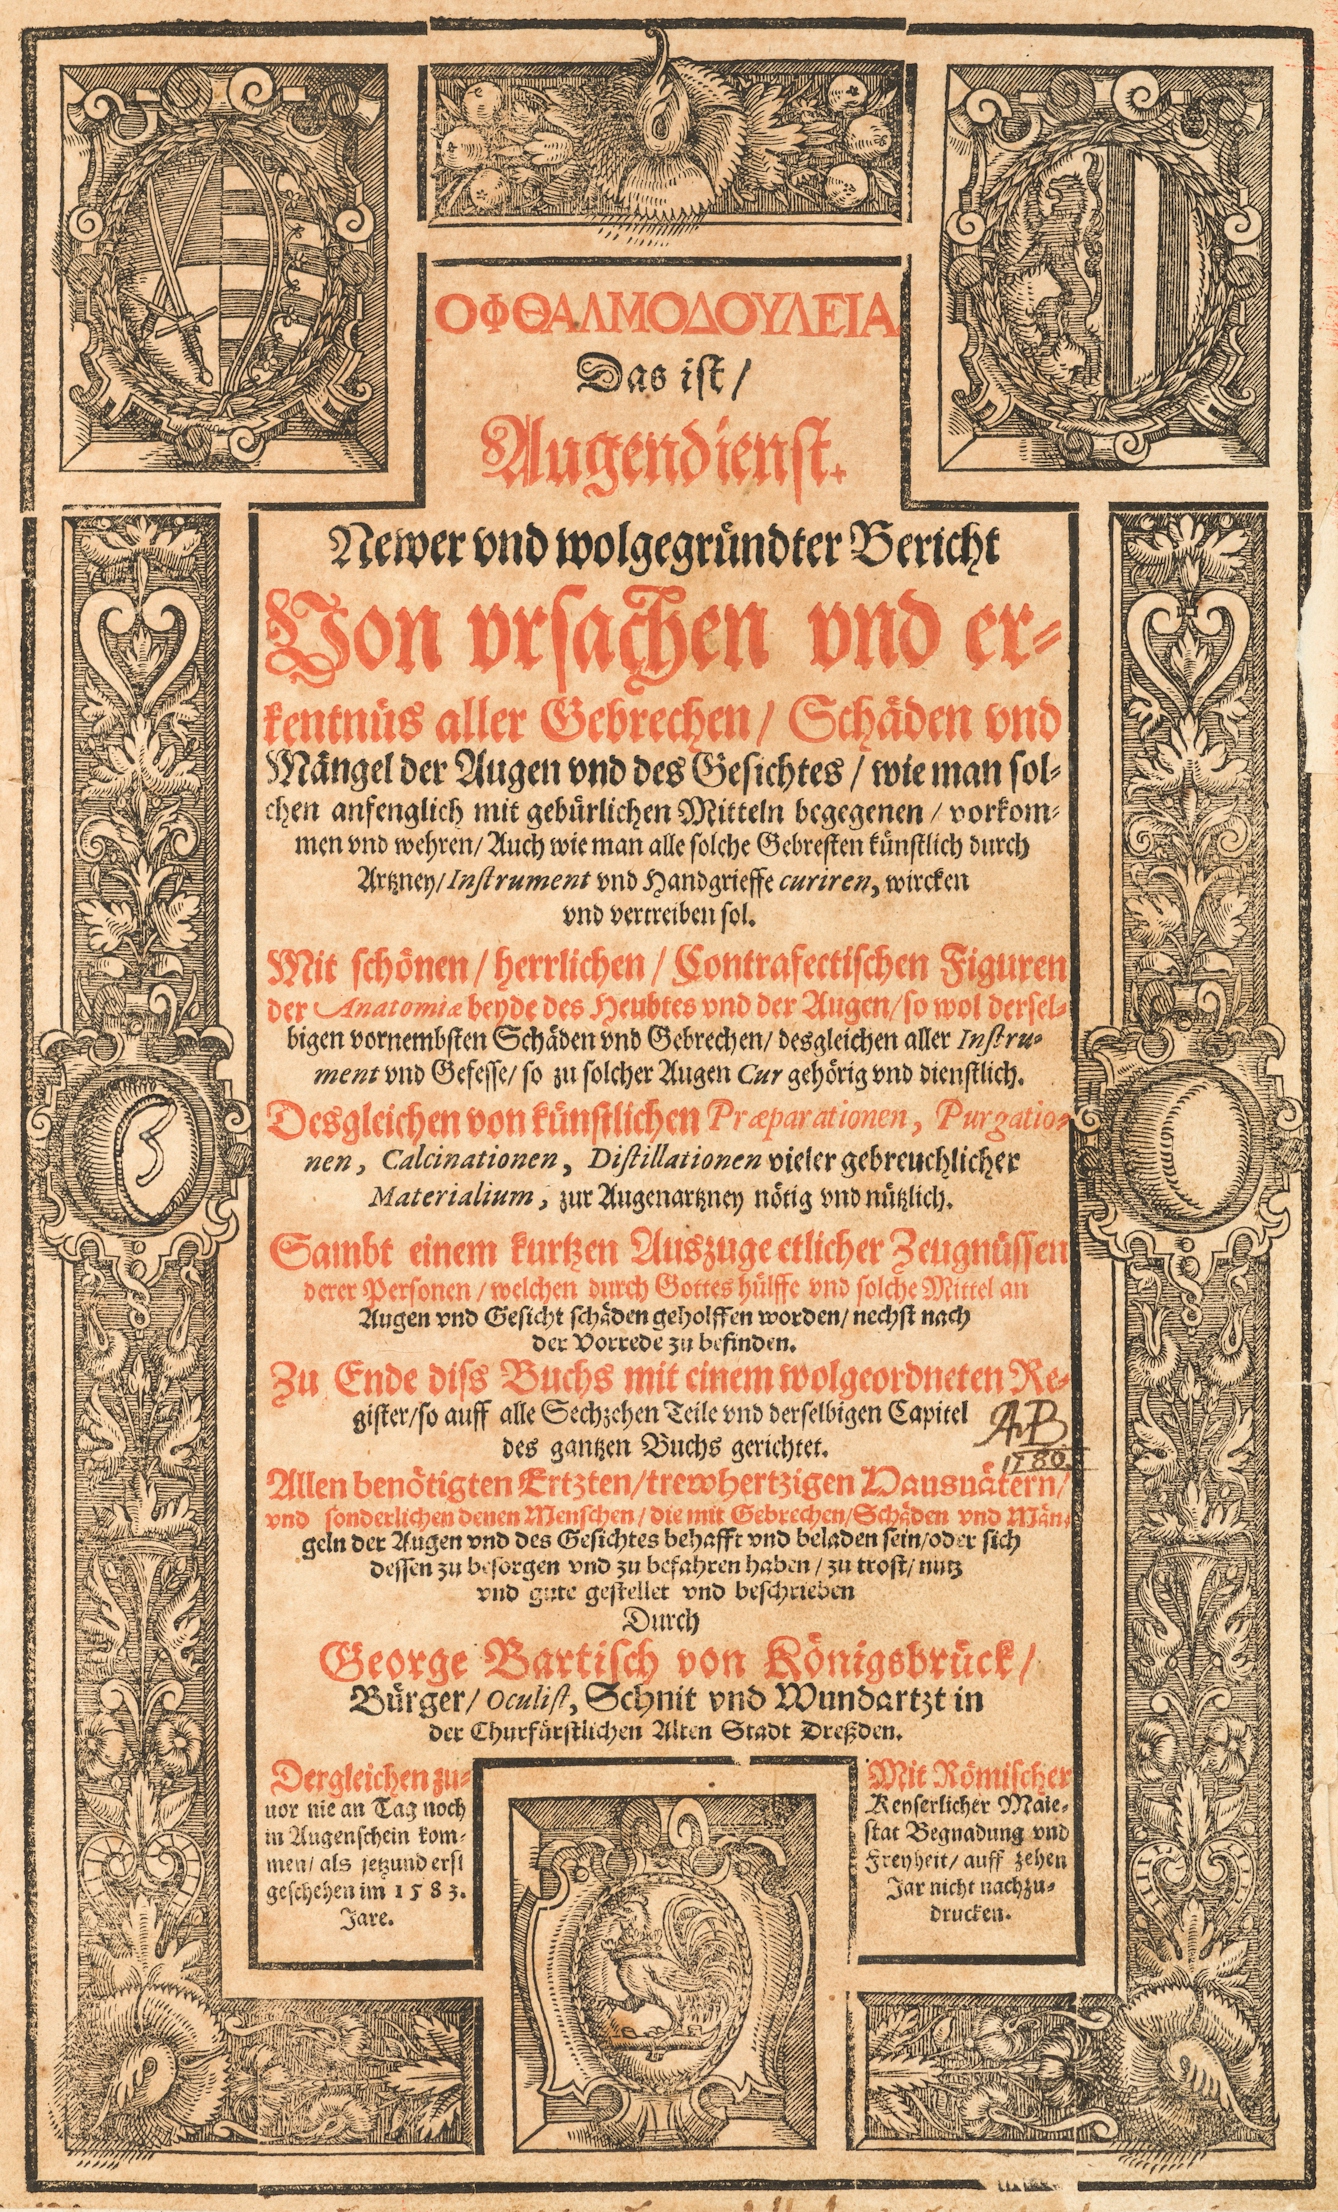 ΟΦΘΑΛΜΟΔΟΥΛΕΙΑ
Das ist/
Augendienst.
Newer vnd wolgegründter Bericht
Von vrsachen vnd er-
kentnüs aller Gebrechen/ Schäden vnd
Mängel der Augen vnd des Gesichtes/ wie man sol-
chen anfenglich mit gebürlichen Mitteln begegenen/ vorkom-
men vnd wehren/ Auch wie man alle solche Gebresten künstlich durch
Artzney/ Instrument vnd Handgrieffe curiren, wircken
vnd vertreiben sol.
Mit schönen/ herrlichen/ Contrafectischen Figuren
der Anatomiæ beyde des Heubtes vnd der Augen/ so wol dersel-
bigen vornembsten Schäden vnd Gebrechen/ desgleichen aller Instru-
ment vnd Gefesse/ so zu solcher Augen Cur gehörig vnd dienstlich.
Desgleichen von künstlichen Præparationen, Purgatio-
nen, Calcinationen, Distillationen vieler gebreuchlicher
Materialium, zur Augenartzney nötig vnd nützlich.
Sambt einem kurtzen Auszuge etlicher Zeugnüssen
derer Personen/ welchen durch Gottes hülffe vnd solche Mittel an
Augen vnd Gesicht schäden geholffen worden/ nechst nach
der Vorrede zu befinden.
Zu Ende diss Buchs mit einem wolgeordneten Re-
gister/ so auff alle Sechzehen Teile vnd derselbigen Capitel
des gantzen Buchs gerichtet.
AB
1780.
Allen benötigten Ertzten/ trewhertzigen Hausuätern/
vnd sonderlichen denen Menschen/ die mit Gebrechen/ Schäden vnd Män-
geln der Augen vnd des Gesichtes behafft vnd beladen sein/ oder sich
dessen zu besorgen vnd zu befahren haben/ zu trost/ nutz
vnd gute gestellet vnd beschrieben
Durch
George Bartisch von Königsbrück/
Bürger/ Oculist, Schnit vnd Wundartzt in
der Churfürstlichen Alten Stadt Dreßden.
Dergleichen zu-
uor nie an Tag noch
in Augenschein kom-
men/ als jetzund erst
geschehen im 1583.
Jare.
Mit Römischer
Keyserlicher Maie-
stat Begnadung vnd
Freyheit/ auff zehen
Jar nicht nachzu-
drucken.